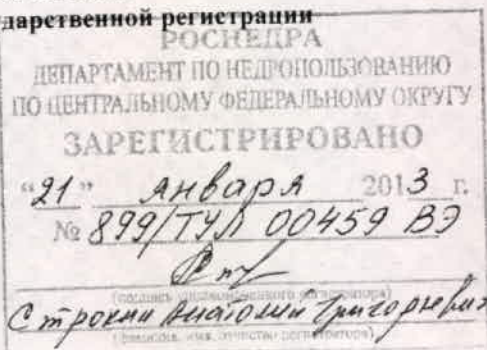 дарственной регистрации
РОСНЕДРА
ДЕПАРТАМЕНТ ПО НЕДРОПОЛЬЗОВАНИЮ
ПО ЦЕНТРАЛЬНОМУ ФЕДЕРАЛЬНОМУ ОКРУГУ
ЗАРЕГИСТРИРОВАНО
"21" января 2013 г.
№ 899/ТУЛ 00459 ВЭ
(подпись уполномоченного регистратора)
Строкин Анатолий Григорьевич
(фамилия, имя, отчество регистратора)